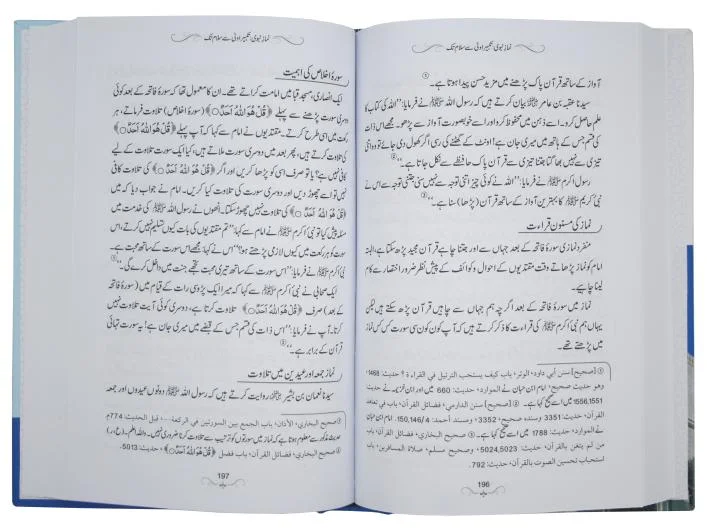 نماز نبوی: تکبیر اولیٰ سے سلام تک
آواز کے ساتھ قرآن پاک پڑھنے میں مزید حسن پیدا ہوتا ہے۔①
سیدنا عقبہ بن عامر رضی اللہ عنہ بیان کرتے ہیں کہ رسول اللہ ﷺ نے فرمایا: ”اللہ کی کتاب کا
علم حاصل کرو۔ اسے ذہن میں محفوظ کرو اور اسے خوبصورت آواز سے پڑھو۔ مجھے اس ذات
کی قسم جس کے ہاتھ میں میری جان ہے! اونٹ کے گھٹنے کی رسی اگر کھول دی جائے تو وہ اتنی
تیزی سے نہیں بھاگتا جتنا تیزی سے قرآن پاک حافظے سے نکل جاتا ہے۔“②
رسول اکرم ﷺ نے فرمایا: ”اللہ نے کوئی چیز اتنی توجہ سے نہیں سنی جتنی توجہ سے اس نے
نبی کریم ﷺ کا بہترین آواز کے ساتھ قرآن (پڑھنا) سنا ہے۔“③
نماز کی مسنون قراءت
منفرد نمازی سورۂ فاتحہ کے بعد جہاں سے اور جتنا چاہے قرآن مجید پڑھ سکتا ہے، البتہ
امام کو نماز پڑھاتے وقت مقتدیوں کے احوال و کوائف کے پیش نظر ضرور اختصار سے کام
لینا چاہیے۔
نماز میں سورۂ فاتحہ کے بعد اگرچہ ہم جہاں سے چاہیں قرآن پڑھ سکتے ہیں لیکن
یہاں ہم نبی اکرم ﷺ کی قراءت کا ذکر کرتے ہیں کہ آپ کون کون سی سورت کس کس نماز
میں پڑھتے تھے۔
① [صحیح] سنن أبي داود، الوتر، باب کیف یستحب الترتیل في القراءة؟ حدیث: 1468،
وهو حدیث صحیح، امام ابن حبان نے الموارد، حدیث: 660 میں اور ابن خزیمہ نے حدیث
1556,1551 میں اسے صحیح کہا ہے۔ ② [صحیح] سنن الدارمي، فضائل القرآن، باب في تعاهد
القرآن، حدیث: 3351 وسنده صحیح، 3352، ومسند أحمد: 150,146/4، امام ابن حبان
نے الموارد، حدیث: 1788 میں اسے صحیح کہا ہے۔ ③ صحیح البخاري، فضائل القرآن، باب
من لم یتغن بالقرآن، حدیث: 5024,5023، وصحیح مسلم، صلاة المسافرین، باب
استحباب تحسین الصوت بالقرآن، حدیث: 792.
196
نماز نبوی: تکبیر اولیٰ سے سلام تک
سورۂ اخلاص کی اہمیت
ایک انصاری، مسجد قبا میں امامت کراتے تھے۔ ان کا معمول تھا کہ سورۂ فاتحہ کے بعد کوئی
دوسری سورت پڑھنے سے پہلے ﴿قُلْ هُوَ اللّٰهُ اَحَدٌ﴾ (سورۂ اخلاص) تلاوت فرماتے، ہر
رکعت میں اسی طرح کرتے۔ مقتدیوں نے امام سے کہا کہ آپ پہلے ﴿قُلْ هُوَ اللّٰهُ اَحَدٌ﴾
کی تلاوت کرتے ہیں، پھر بعد میں دوسری سورت ملاتے ہیں، کیا ایک سورت تلاوت کے لیے
کافی نہیں ہے؟ یا تو صرف اسی کو پڑھا کریں اور اگر ﴿قُلْ هُوَ اللّٰهُ اَحَدٌ﴾ کی تلاوت کافی
نہیں تو اسے چھوڑ دیں اور دوسری سورت کی تلاوت کیا کریں۔ امام نے جواب دیا کہ میں
﴿قُلْ هُوَ اللّٰهُ اَحَدٌ﴾ کی تلاوت نہیں چھوڑ سکتا۔ انھوں نے رسول اللہ ﷺ کی خدمت میں
مسئلہ پیش کیا تو نبی اکرم ﷺ نے امام سے کہا: ”تم مقتدیوں کی بات کیوں تسلیم نہیں کرتے، اس
سورت کو ہر رکعت میں کیوں لازمی پڑھتے ہو؟“ اس نے کہا: مجھے اس سورت سے محبت ہے۔
نبی اکرم ﷺ نے فرمایا: ”اس سورت کے ساتھ تیری محبت تجھے جنت میں داخل کرے گی۔“①
ایک صحابی نے نبی اکرم ﷺ سے کہا کہ میرا ایک پڑوسی رات کے قیام میں (سورۂ فاتحہ
کے بعد) صرف ﴿قُلْ هُوَ اللّٰهُ اَحَدٌ﴾ تلاوت کرتا ہے، دوسری کوئی آیت تلاوت نہیں
کرتا۔ آپ نے فرمایا: ”اس ذات کی قسم جس کے قبضے میں میری جان ہے! یہ سورت تہائی
قرآن کے برابر ہے۔“②
نماز جمعہ اور عیدین میں تلاوت
سیدنا نعمان بن بشیر رضی اللہ عنہ روایت کرتے ہیں کہ رسول اللہ ﷺ دونوں عیدوں اور جمعہ
① صحیح البخاري، الأذان، باب الجمع بین السورتین في الرکعة...، قبل الحدیث: 774م
حدیث مذکور سے معلوم ہوتا ہے کہ نماز میں سورتوں کو ترتیب سے تلاوت کرنا ضروری نہیں۔ واللہ اعلم۔ (ع، ر)
② صحیح البخاري، فضائل القرآن، باب فضل ﴿قُلْ هُوَ اللّٰهُ اَحَدٌ﴾، حدیث: 5013.
197